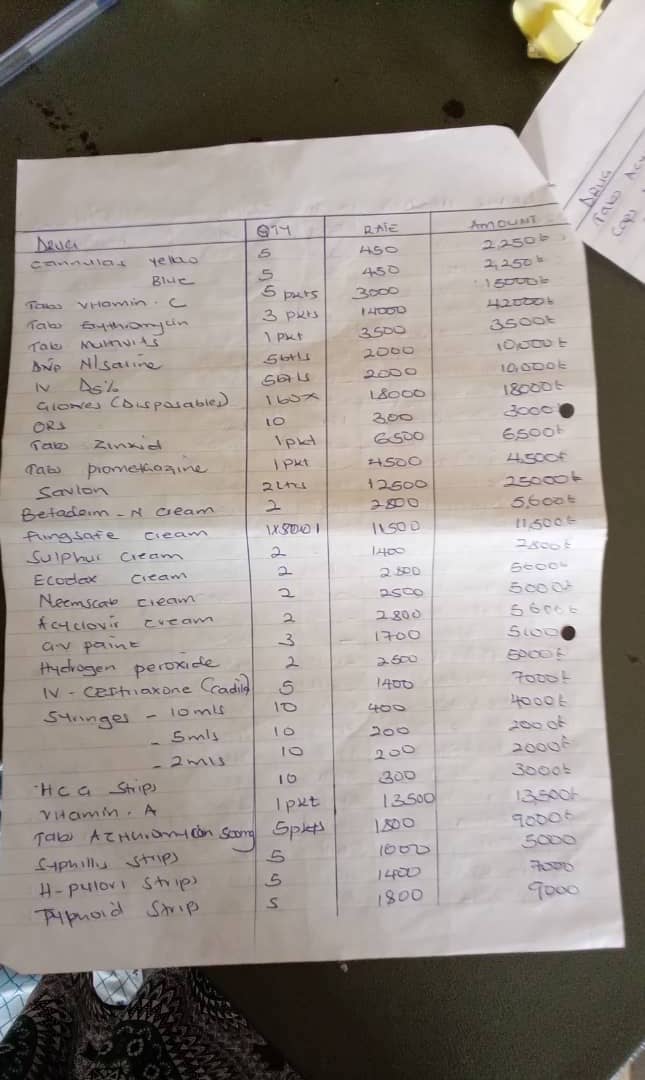 DRUG QTY RATE AMOUNT
Cannulas Yellow 5 450 2,250/=
Blue 5 450 2,250/=
Tabs Vitamin. C 5 pkts 3000 15000/=
Tabs Erythromycin 3 pkts 14000 42000/=
Tabs Multivits 1 pkt 3500 3500/=
N/Saline 5btls 2000 10,000/=
IV D5% 5btls 2000 10,000/=
Gloves (Disposables) 1 box 18000 18000/=
ORS 10 300 3000
Tabs Zinkid 1pkt 6,500 6,500/=
Tabs promethazine 1 pkt 4500 4,500/=
Savlon 2Ltrs 12500 25000/=
Betaderm - N Cream 2 2800 5,600/=
Fungsafe Cream 11,500 11,500/=
Sulphur Cream 2 1400 2,800/=
Ecodax Cream 2 2800 5600/=
Neemscab Cream 2 2500 5000/=
Acyclovir Cream 2 2800 5600/=
G.V paint 3 1700 5,100
Hydrogen peroxide 2 2500 5000/=
IV - Ceftriaxone 5 1400 7000/=
Syringes - 10mls 10 400 4000/=
- 5mls 10 200 2000/=
- 2mls 10 200 2000/=
HCG Strips 10 300 3000/=
Vitamin. A 1pkt 13,500 13,500/=
Tabs Azithromycin 500mg 5pkts 1800 9000/=
Syphillis Strips 5 1000 5000
H-pylori Strips 5 1400 7000
Typhoid Strip 5 1800 9000
DRUG
Tabs
Caps